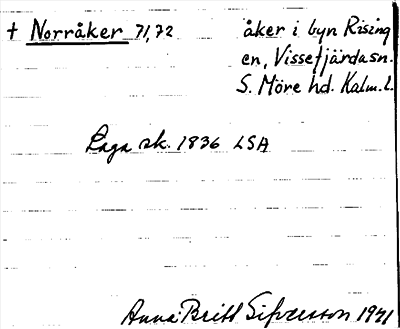 † Norråker 71,72 åker i byn Rising
en, Vissefjärda sn.
S. Möre hd. Kalm. l.
Laga sk. 1836 LSA
Anna Britt Sifversson 1941